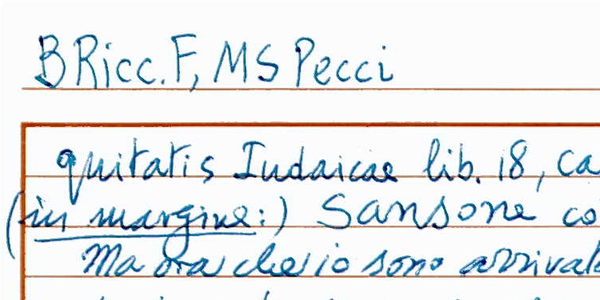 B Ricc. F, MS Pecci
quitatis Iudaicae lib. 18, ca
(in margine:) Sansone co
Ma ora che io sono arrivato